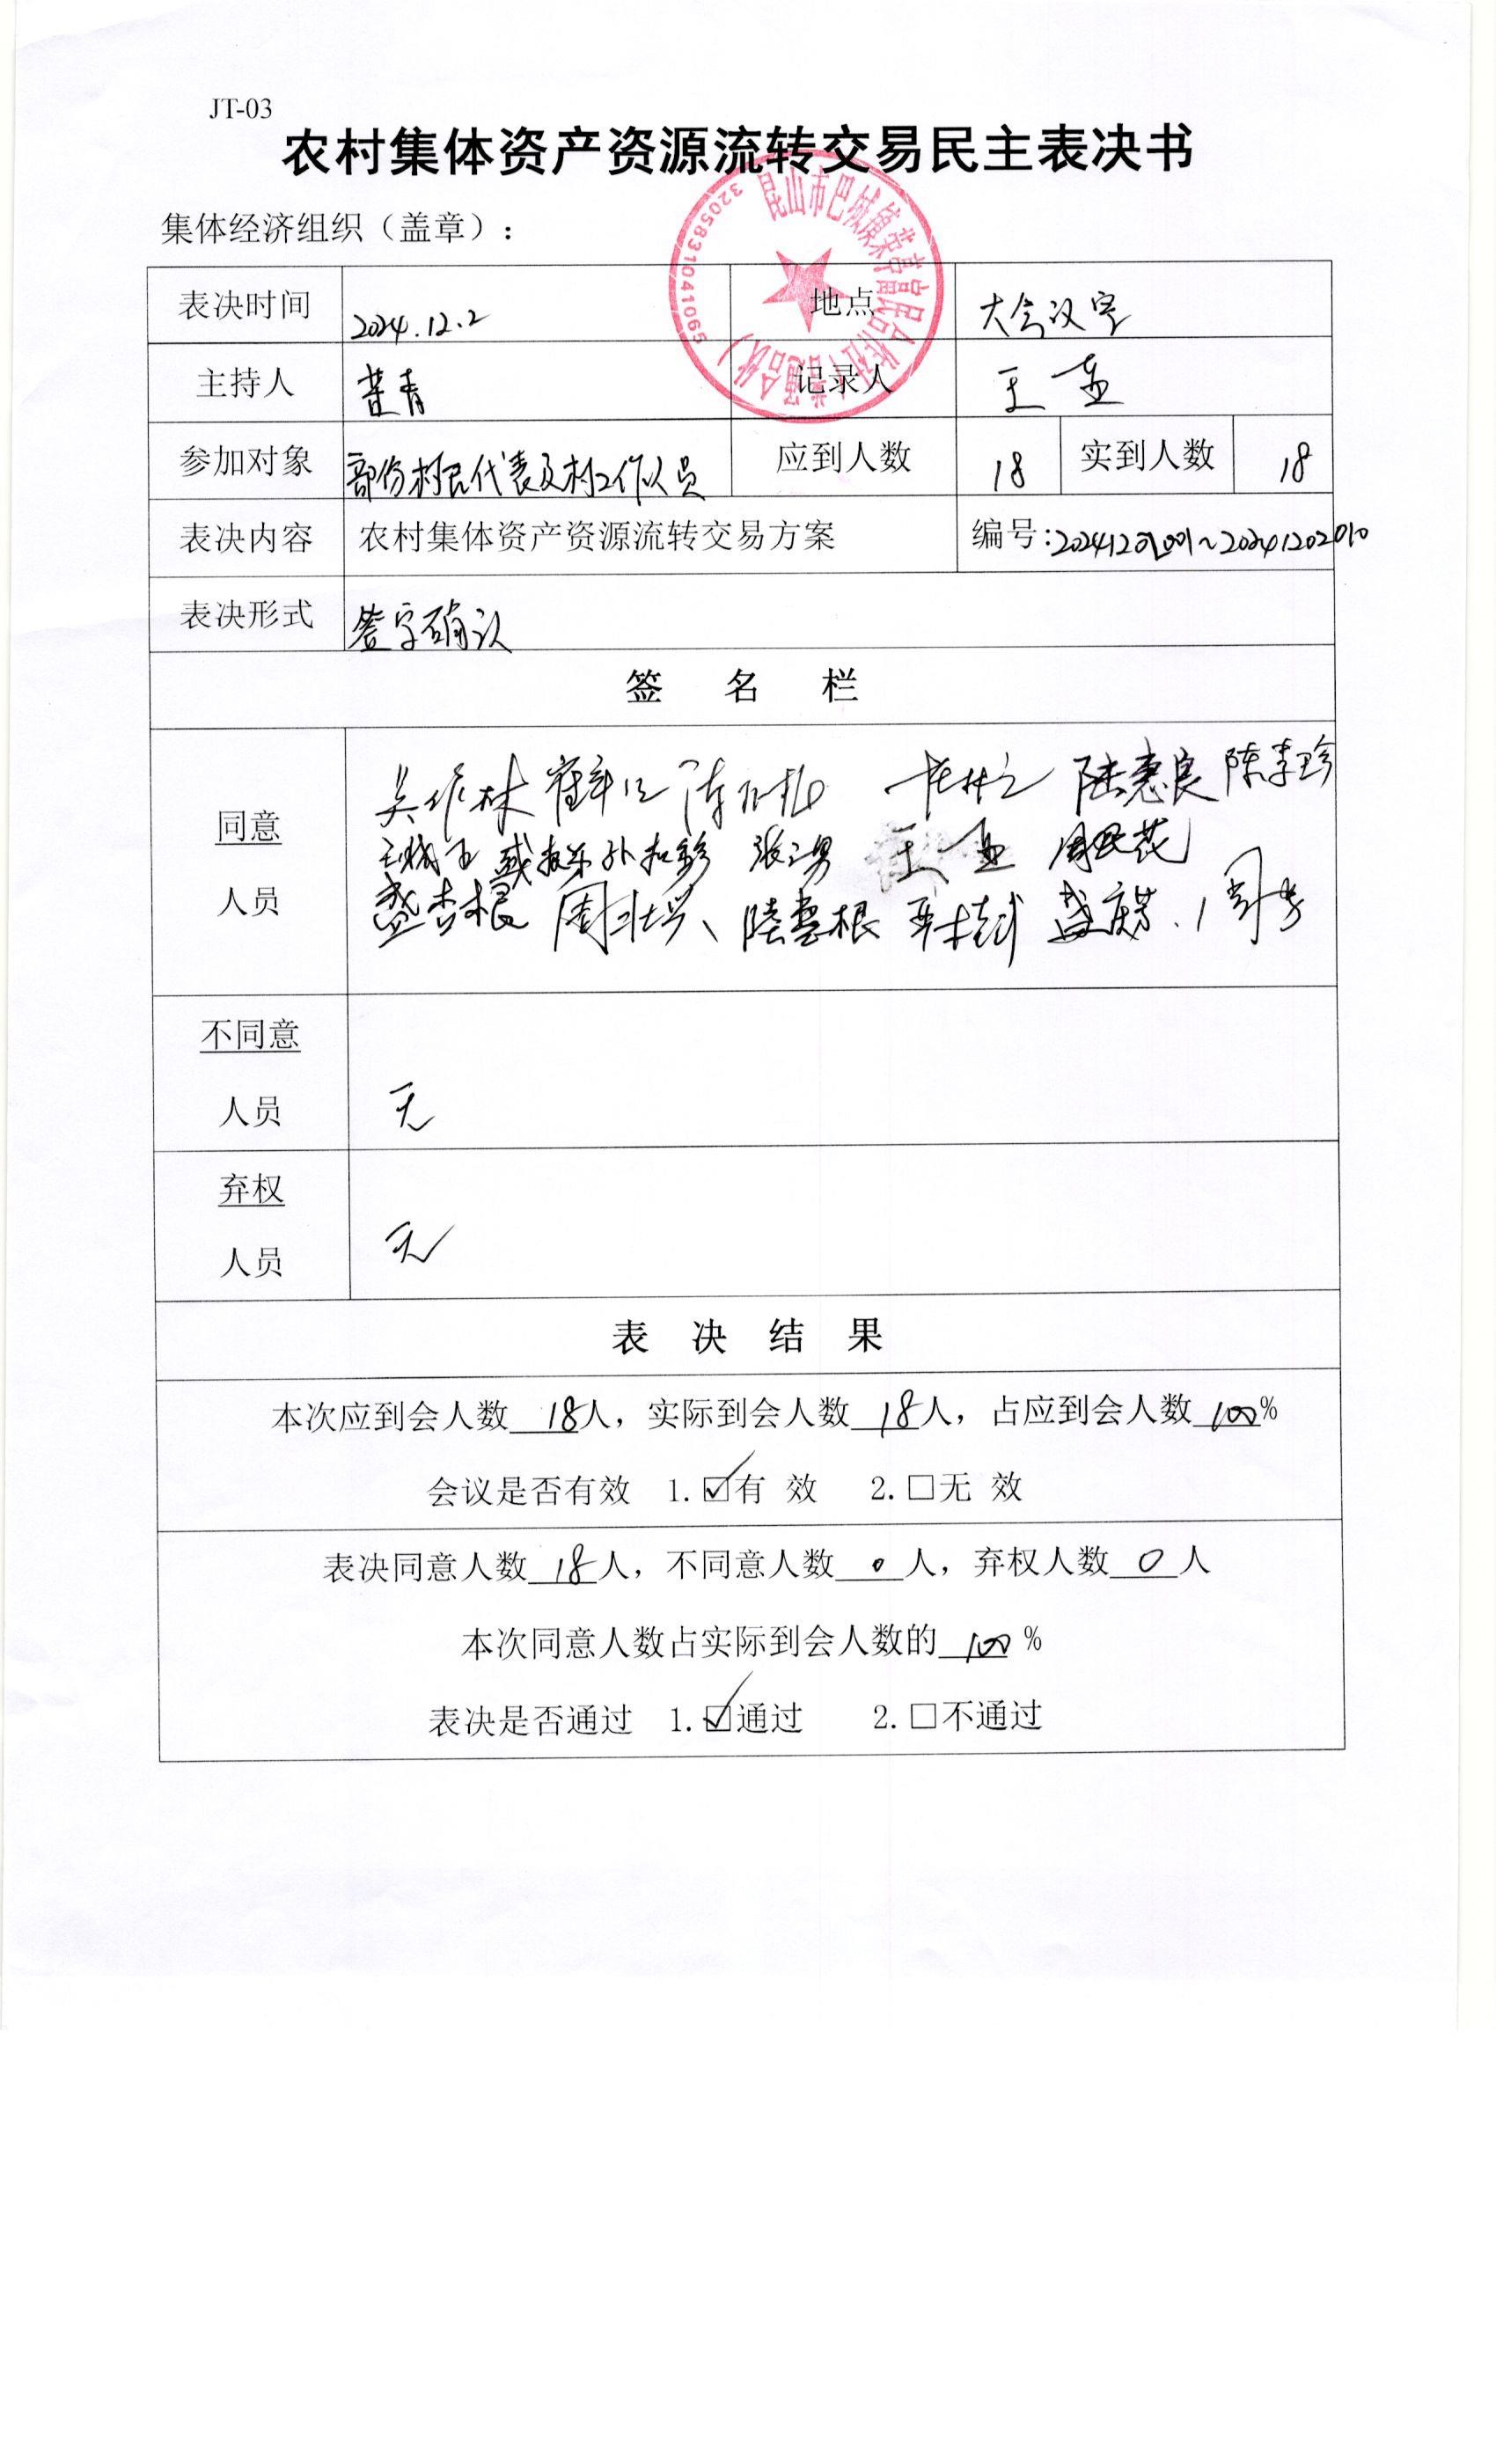 JT-03
农村集体资产资源流转交易民主表决书
集体经济组织（盖章）：
昆山市巴城镇
3205831041095
表决时间 2024.12.2 地点 大会议室
主持人 青 记录人 王
参加对象 部份村民代表及村工作人员 应到人数 18 实到人数 18
表决内容 农村集体资产资源流转交易方案 编号：20241202001～20241202010
表决形式 签字确认
签 名 栏
同意
人员
陆惠良 陈李珍
张 勇 王
盛杏根 周 根
不同意
人员
无
弃权
人员
无
表 决 结 果
本次应到会人数 18人，实际到会人数 18人，占应到会人数 100%
会议是否有效 1.☑有 效 2.□无 效
表决同意人数 18人，不同意人数 0 人，弃权人数 0 人
本次同意人数占实际到会人数的 100 %
表决是否通过 1.☑通过 2.□不通过